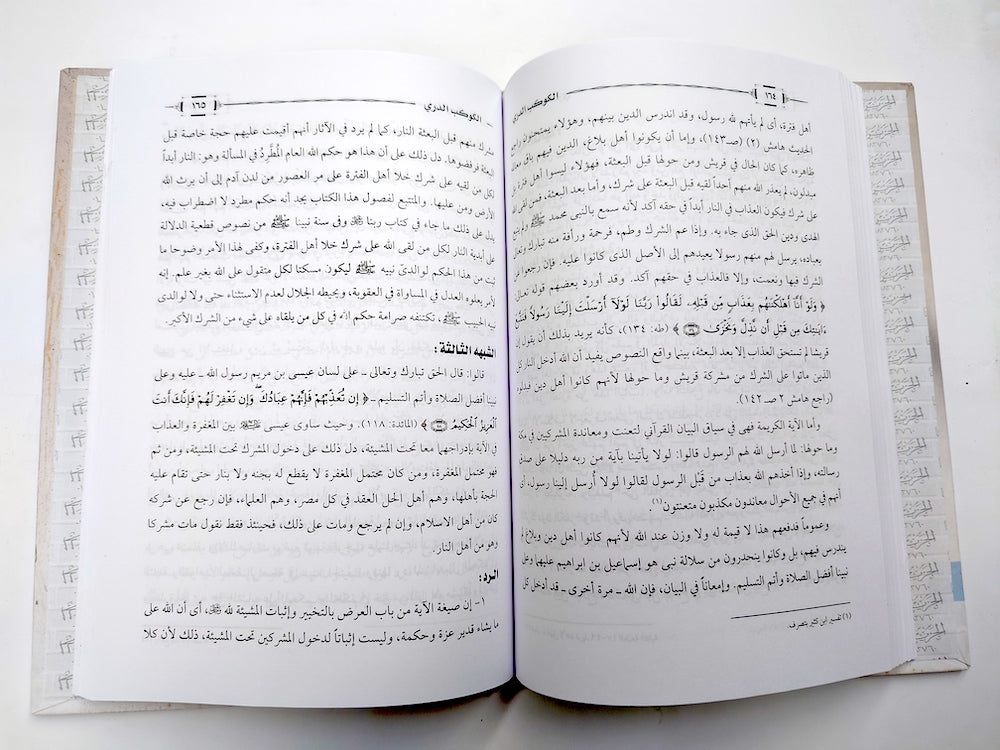 ١٦٤
الكوكب الدري
أهل فترة، أى لم يأتهم لله رسول، وقد اندرس الدين بينهم، وهؤلاء يمتحنون
الحديث هامش (٢) (صـ١٤٣)، وإما أن يكونوا أهل بلاغ، الدين فيهم باق
ظاهره، كما كان الحال في قريش ومن حولها قبل البعثة، فهؤلاء ليسوا أهل فترة بل
مبدلون، لم يعذر الله منهم أحداً لقيه قبل البعثة على شرك، وأما بعد البعثة، فمن لقى الله
على شرك فيكون العذاب في النار أبداً في حقه آكد لأنه سمع بالنبى محمد ﷺ
الهدى ودين الحق الذى جاء به. وإذا عم الشرك وطم، فرحمة ورأفة منه تبارك وتعالى
بعباده، يرسل لهم منهم رسولا يعيدهم إلى الأصل الذى كانوا عليه. فإن رجعوا عن
الشرك فبها ونعمت، وإلا فالعذاب في حقهم آكد. وقد أورد بعضهم قوله تعالى
﴿ وَلَوْ أَنَّا أَهْلَكْنَٰهُم بِعَذَابٍ مِّن قَبْلِهِۦ لَقَالُوا۟ رَبَّنَا لَوْلَآ أَرْسَلْتَ إِلَيْنَا رَسُولًا فَنَتَّبِعَ
ءَايَٰتِكَ مِن قَبْلِ أَن نَّذِلَّ وَنَخْزَىٰ ﴾ (طه: ١٣٤)، كأنه يريد بذلك أن يقول إن
قريشا لم تستحق العذاب إلا بعد البعثة، بينما واقع النصوص يفيد أن الله أدخل النار كل
الذين ماتوا على الشرك من مشركة قريش وما حولها لأنهم كانوا أهل دين
(راجع هامش ٢ صـ١٤٢).
وأما الآية الكريمة فهى في سياق البيان القرآني لتعنت ومعاندة المشركين في مكة
وما حولها: لما أرسل الله لهم الرسول قالوا: لولا يأتينا بآية من ربه دليلا على صدق
رسالته، وإذا أخذهم الله بعذاب من قَبْل الرسول لقالوا لولا أرسل إلينا رسول، أى
أنهم في جميع الأحوال معاندون مكذبون متعنتون(١).
وعموماً فدفعهم هذا لا قيمة له ولا وزن عند الله لأنهم كانوا أهل دين وبلاغ لم
يندرس فيهم، بل وكانوا ينحدرون من سلالة نبى هو إسماعيل بن ابراهيم عليهما وعلى
نبينا أفضل الصلاة وأتم التسليم. وإمعاناً في البيان، فإن الله ـ مرة أخرى ـ قد أدخل كل
(١) تفسير ابن كثير بتصرف.
الكوكب الدري
١٦٥
مشرك منهم قبل البعثة النار، كما لم يرد في الآثار أنهم أقيمت عليهم حجة خاصة قبل
البعثة فرفضوها. دل ذلك على أن هذا هو حكم الله العام المُطَّرِدُ في المسألة وهو: النار أبداً
لكل من لقيه على شرك خلا أهل الفترة على مر العصور من لدن آدم إلى أن يرث الله
الأرض ومن عليها. والمتتبع لفصول هذا الكتاب يجد أنه حكم مطرد لا اضطراب فيه،
يدل على ذلك ما جاء في كتاب ربنا ﷻ وفى سنة نبينا ﷺ من نصوص قطعية الدلالة
على أبدية النار لكل من لقى الله على شرك خلا أهل الفترة، وكفى لهذا الأمر وضوحا ما
ثبت من هذا الحكم لوالدىّ نبيه ﷺ ليكون مسكتا لكل متقول على الله بغير علم. إنه
لأمر يعلوه العدل في المساواة في العقوبة، ويحيطه الجلال لعدم الاستثناء حتى ولا لوالدى
نبيه الحبيب ﷺ، تكتنفه صرامة حكم الله في كل من يلقاه على شيء من الشرك الأكبر.
الشبهه الثالثة:
قالوا: قال الحق تبارك وتعالى ـ على لسان عيسى بن مريم رسول الله ـ عليه وعلى
نبينا أفضل الصلاة وأتم التسليم ـ ﴿ إِن تُعَذِّبْهُمْ فَإِنَّهُمْ عِبَادُكَ ۖ وَإِن تَغْفِرْ لَهُمْ فَإِنَّكَ أَنتَ
ٱلْعَزِيزُ ٱلْحَكِيمُ ﴾ (المائدة: ١١٨). وحيث ساوى عيسى ﷺ بين المغفرة والعذاب
في الآية بإدراجهما معا تحت المشيئة، دل ذلك على دخول المشرك تحت المشيئة، ومن ثم
فهو محتمل المغفرة، ومن كان محتمل المغفرة لا يقطع له بجنه ولا بنار حتى تقام عليه
الحجة بأهلها، وهم أهل الحل العقد في كل مصر، وهم العلماء، فإن رجع عن شركه
كان من أهل الاسلام، وإن لم يرجع ومات على ذلك، فحينئذ فقط نقول مات مشركا
وهو من أهل النار.
الرد:
١- إن صيغة الآية من باب العرض بالتخيير وإثبات المشيئة لله ﷻ، أى أن الله على
ما يشاء قدير عزة وحكمة، وليست إثباتاً لدخول المشركين تحت المشيئة، ذلك لأن كلا